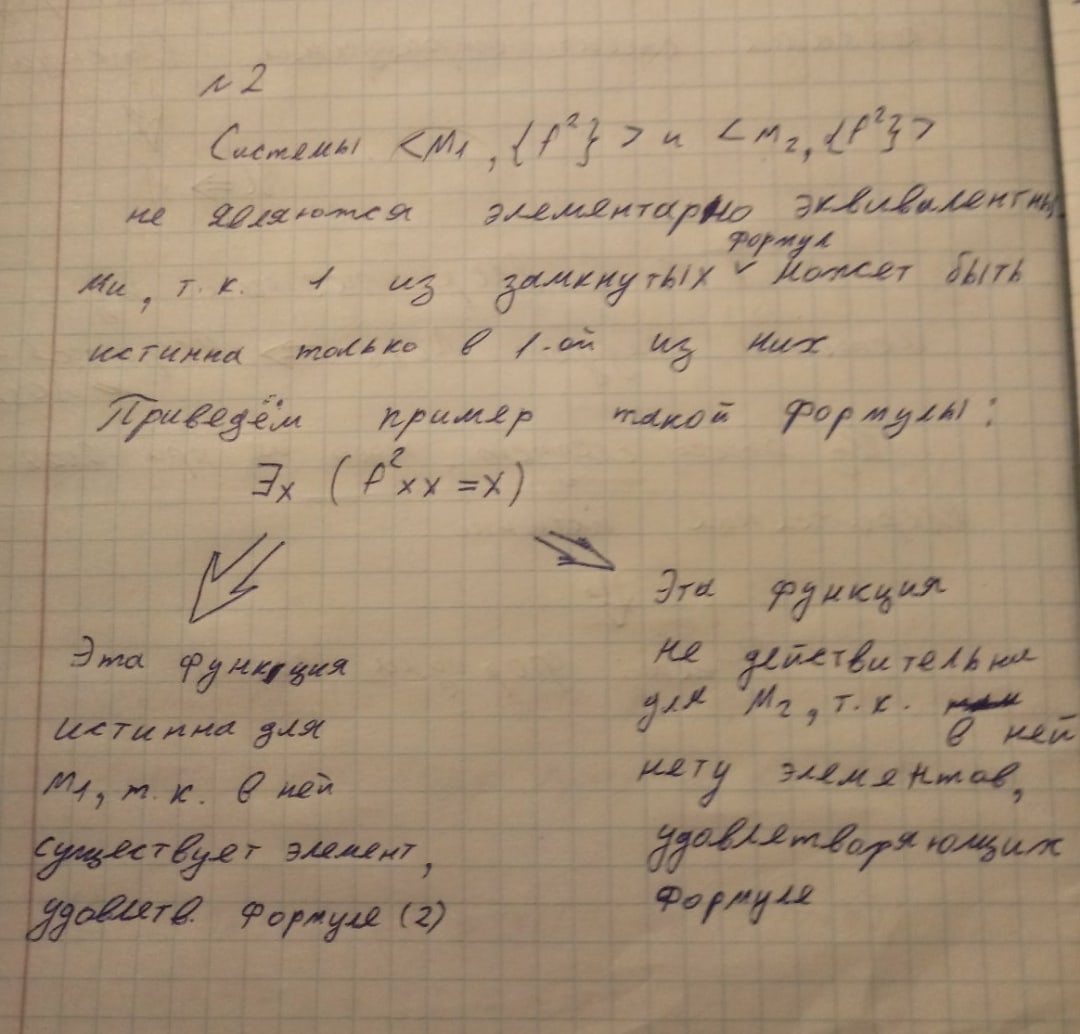 №2
Системы <M₁, {f²}> и <M₂, {f²}>
не являются элементарно эквивалентны
формул
ми, т.к. 1 из замкнутых ˇ может быть
истинна только в 1-ой из них
Приведём пример такой формулы:
∃x (f²xx = x)
Эта функция
истинна для
M₁, т.к. в ней
существует элемент,
удовлетв. формуле (2)
Эта функция
не действительна
для M₂, т.к.
в ней
нету элементов,
удовлетворяющих
формуле